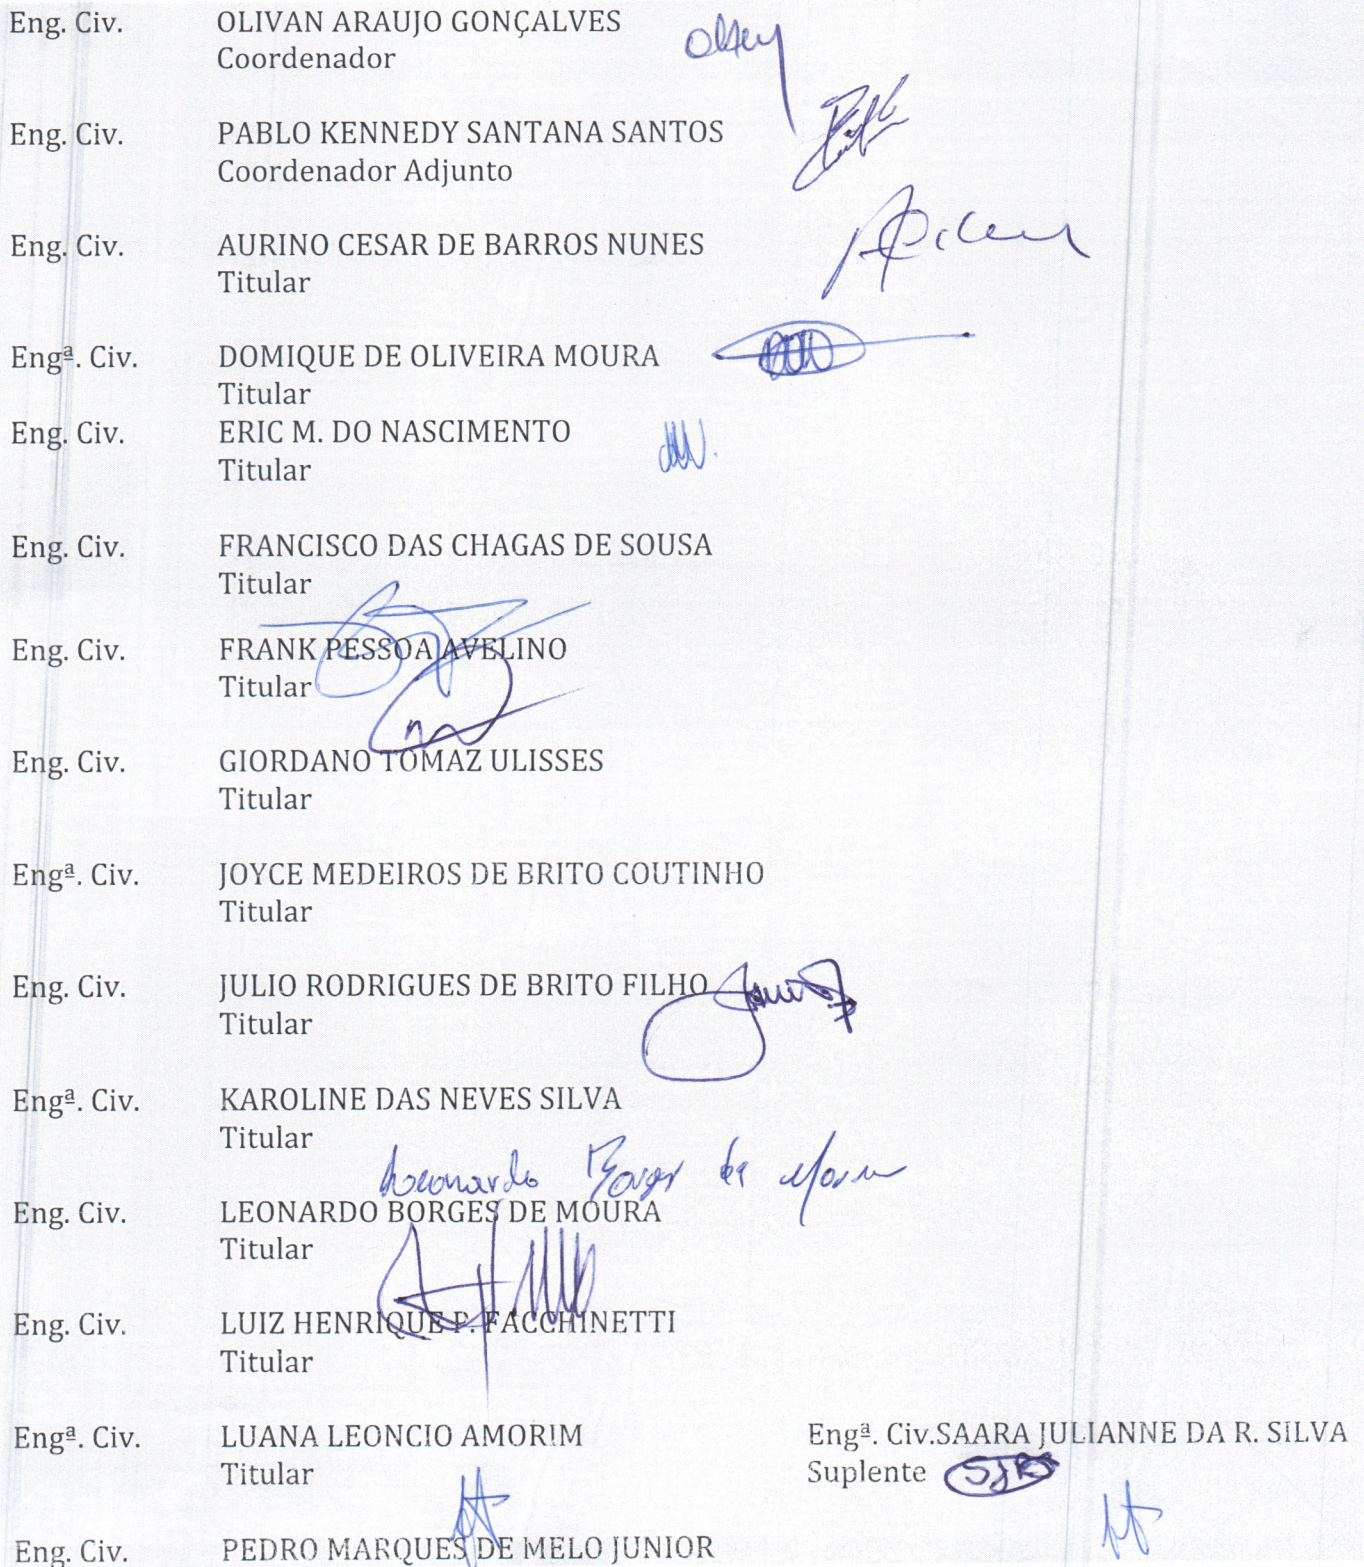 Eng. Civ. OLIVAN ARAUJO GONÇALVES
Coordenador
Eng. Civ. PABLO KENNEDY SANTANA SANTOS
Coordenador Adjunto
Eng. Civ. AURINO CESAR DE BARROS NUNES
Titular
Engª. Civ. DOMIQUE DE OLIVEIRA MOURA
Titular
Eng. Civ. ERIC M. DO NASCIMENTO
Titular
Eng. Civ. FRANCISCO DAS CHAGAS DE SOUSA
Titular
Eng. Civ. FRANK PESSOA AVELINO
Titular
Eng. Civ. GIORDANO TOMAZ ULISSES
Titular
Engª. Civ. JOYCE MEDEIROS DE BRITO COUTINHO
Titular
Eng. Civ. JULIO RODRIGUES DE BRITO FILHO
Titular
Engª. Civ. KAROLINE DAS NEVES SILVA
Titular
Leonardo Borges de Moura
Eng. Civ. LEONARDO BORGES DE MOURA
Titular
Eng. Civ. LUIZ HENRIQUE P. FACCHINETTI
Titular
Engª. Civ. LUANA LEONCIO AMORIM Engª. Civ.SAARA JULIANNE DA R. SILVA
Titular Suplente SJRS
Eng. Civ. PEDRO MARQUES DE MELO JUNIOR